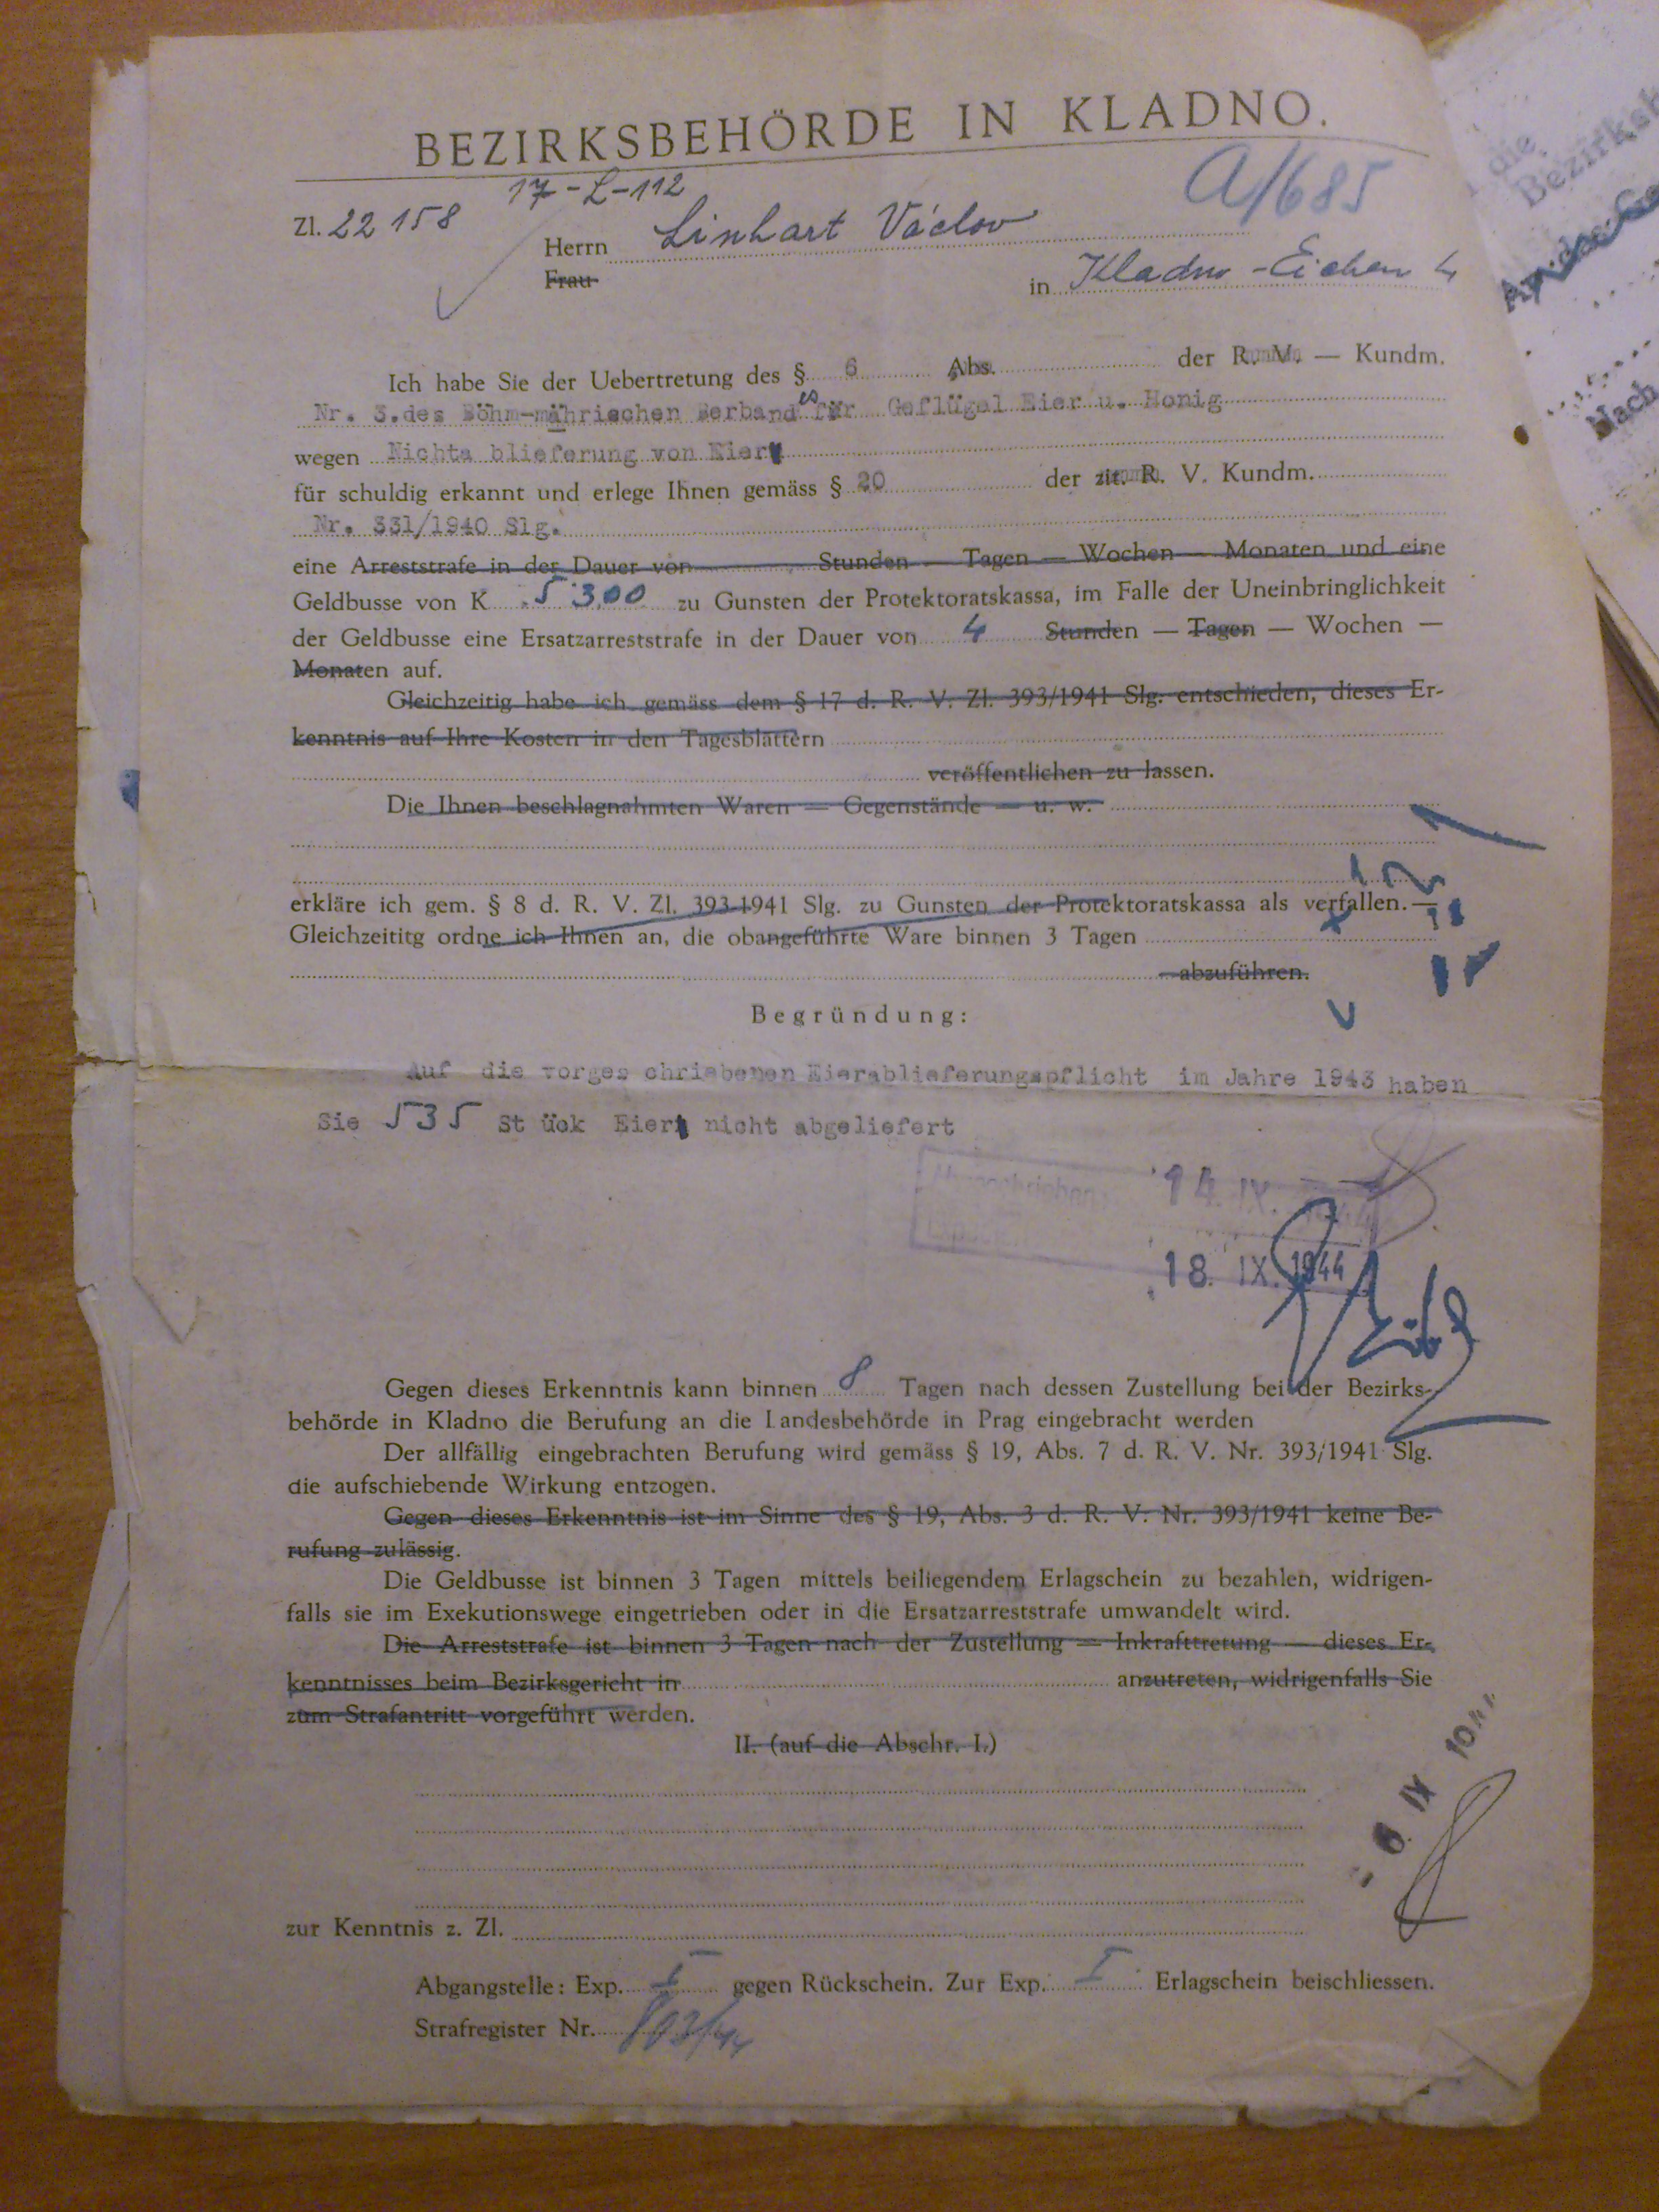 BEZIRKSBEHÖRDE IN KLADNO.
17-L-112
A/685
Zl. 22 158
Herrn Linhart Václav
Frau
in Kladno - Eichen 4
Ich habe Sie der Uebertretung des § 6 Abs. der R. V. — Kundm.
Nr. 3.des Böhm-mährischen Verbandes für Geflügel Eier u. Honig
wegen Nichta blieferung von Eier
für schuldig erkannt und erlege Ihnen gemäss § 20 der zit. R. V. Kundm.
Nr. 331/1940 Slg.
eine Arreststrafe in der Dauer von Stunden — Tagen — Wochen — Monaten und eine
Geldbusse von K 5300 zu Gunsten der Protektoratskassa, im Falle der Uneinbringlichkeit
der Geldbusse eine Ersatzarreststrafe in der Dauer von 4 Stunden — Tagen — Wochen —
Monaten auf.
Gleichzeitig habe ich gemäss dem § 17 d. R. V. Zl. 393/1941 Slg. entschieden, dieses Er-
kenntnis auf Ihre Kosten in den Tagesblättern
veröffentlichen zu lassen.
Die Ihnen beschlagnahmten Waren — Gegenstände — u. w.
erkläre ich gem. § 8 d. R. V. Zl. 393-1941 Slg. zu Gunsten der Protektoratskassa als verfallen. —
Gleichzeititg ordne ich Ihnen an, die obangeführte Ware binnen 3 Tagen
abzuführen.
Begründung:
Auf die vorges chriebenen Eierablieferungspflicht im Jahre 1943 haben
Sie 535 St ück Eier nicht abgeliefert
14. IX. 1944
18. IX. 1944
Gegen dieses Erkenntnis kann binnen 8 Tagen nach dessen Zustellung bei der Bezirks-
behörde in Kladno die Berufung an die Landesbehörde in Prag eingebracht werden
Der allfällig eingebrachten Berufung wird gemäss § 19, Abs. 7 d. R. V. Nr. 393/1941 Slg.
die aufschiebende Wirkung entzogen.
Gegen dieses Erkenntnis ist im Sinne des § 19, Abs. 3 d. R. V. Nr. 393/1941 keine Be-
rufung zulässig.
Die Geldbusse ist binnen 3 Tagen mittels beiliegendem Erlagschein zu bezahlen, widrigen-
falls sie im Exekutionswege eingetrieben oder in die Ersatzarreststrafe umwandelt wird.
Die Arreststrafe ist binnen 3 Tagen nach der Zustellung — Inkrafttretung — dieses Er-
kenntnisses beim Bezirksgericht in anzutreten, widrigenfalls Sie
zum Strafantritt vorgeführt werden.
II. (auf die Abschr. I.)
6. IX
zur Kenntnis z. Zl.
Abgangstelle: Exp. I gegen Rückschein. Zur Exp. I Erlagschein beischliessen.
Strafregister Nr.
die
Nach